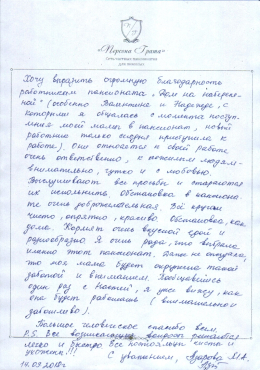 «Первая Грань»
Хочу выразить огромную благодарность
работникам пансионата „Дом на набереж-
ной" (особенно Валентине и Надежде, с
которыми я общалась с момента поступ-
ления моей мамы в пансионат, новой
работнице только сегодня приступила к
работе). Они относятся к своей работе
очень ответственно, к пожилым людям-
внимательно, чутко и с любовью.
Выслушивают все просьбы и стараются
их исполнить. Обстановка в пансиона-
те очень доброжелательная. Всё кругом
чисто, опрятно, красиво. Обстановка, как
дома. Кормят очень вкусной едой и
разнообразно. Я очень рада, что выбрала
именно этот пансионат. Даже не ожидала,
что моя мама будет окружена такой
заботой и вниманием. Пообщавшись
один раз с Настей, я уже вижу как
она будет работать (внимательно и
заботливо).
Большое человеческое спасибо всем.
P.S. Все возникающие вопросы решаются
легко и быстро. Все настоящий
уютно!!!
С уважением, М.А.
14.09.2018г.